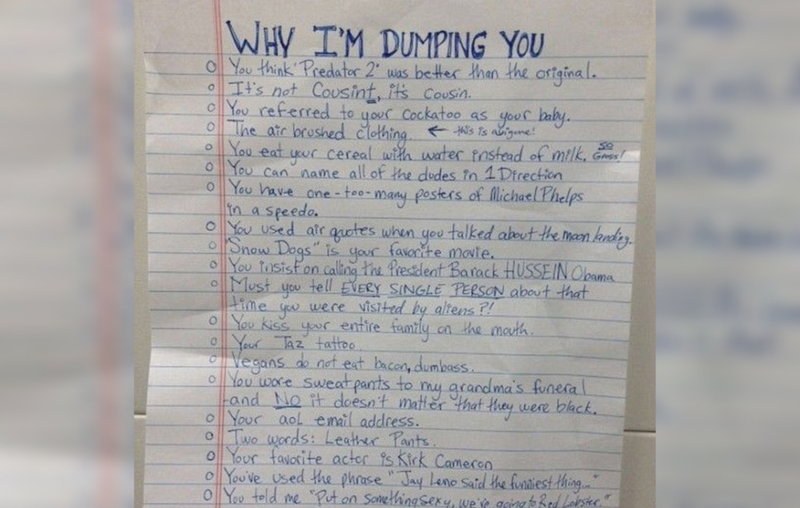 WHY I'M DUMPING YOU
You think "Predator 2" was better than the original.
It's not Cousint, it's cousin.
You referred to your cockatoo as your baby.
The air brushed clothing ← this is anyone!
You eat your cereal with water instead of milk. SO Gross!
You can name all of the dudes in 1 Direction
You have one-too-many posters of Michael Phelps
in a speedo.
You used air quotes when you talked about the moon landing.
"Snow Dogs" is your favorite movie.
You insist on calling the President Barack HUSSEIN Obama
Must you tell EVERY SINGLE PERSON about that
time you were visited by aliens?!
You kiss your entire family on the mouth.
Your Taz tattoo
Vegans do not eat bacon, dumbass.
You wore sweatpants to my grandma's funeral
and NO it doesn't matter that they were black.
Your aol email address.
Two words: Leather Pants.
Your favorite actor is Kirk Cameron
You've used the phrase "Jay Leno said the funniest thing..."
You told me "Put on something sexy, we're going to Red Lobster."